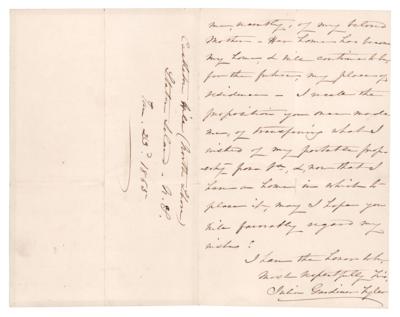 me, recently, of my beloved
Mother – Her home has become
my home, & will continue to be,
for the future, my place of
residence – I recall the
proposition you once made
me, of transferring what I
wished of my portable prop-
erty from Va, & now that I
have a home in which to
place it, may I hope you
will favorably regard my
wishes?
I have the honor to be,
Most respectfully Yrs,
Julia Gardiner Tyler
Castleton Hill (North Shore)
Staten Island – N.Y.
Jan. 23d 1865